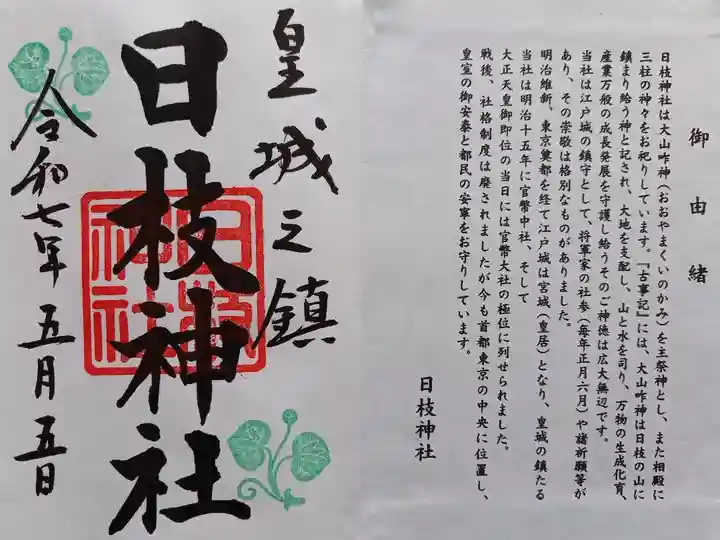 皇城之鎮
日枝神社
日枝神社
令和七年五月五日
御由緒
日枝神社は大山咋神(おおやまくいのかみ)を主祭神とし、また相殿に
三柱の神々をお祀りしています。『古事記』には、大山咋神は日枝の山に
鎮まり給う神と記され、大地を支配し、山と水を司り、万物の生成化育、
産業万般の成長発展を守護し給うそのご神徳は広大無辺です。
当社は江戸城の鎮守として、将軍家の社参(毎年正月六月)や諸祈願等が
あり、その崇敬は格別なものがありました。
明治維新、東京奠都を経て江戸城は宮城(皇居)となり、皇城の鎮たる
当社は明治十五年に官幣中社、そして
大正天皇御即位の当日には官幣大社の極位に列せられました。
戦後、社格制度は廃されましたが今も首都東京の中央に位置し、
皇室の御安泰と都民の安寧をお守りしています。
日枝神社